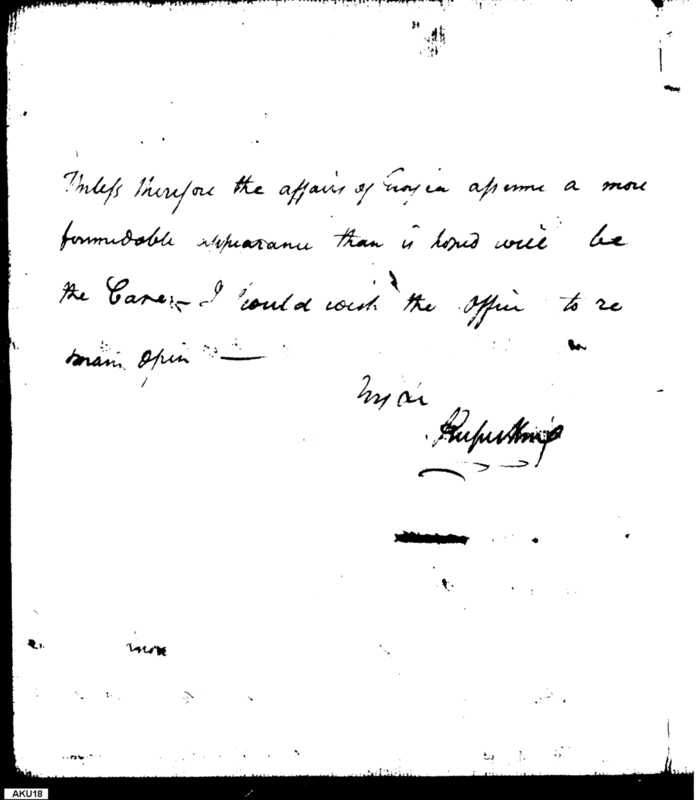 Unless therefore the affairs of Georgia assume a more
formidable appearance than is hoped will be
the Case,— I would wish the office to re
main open —
Rufus King
more
AKU18